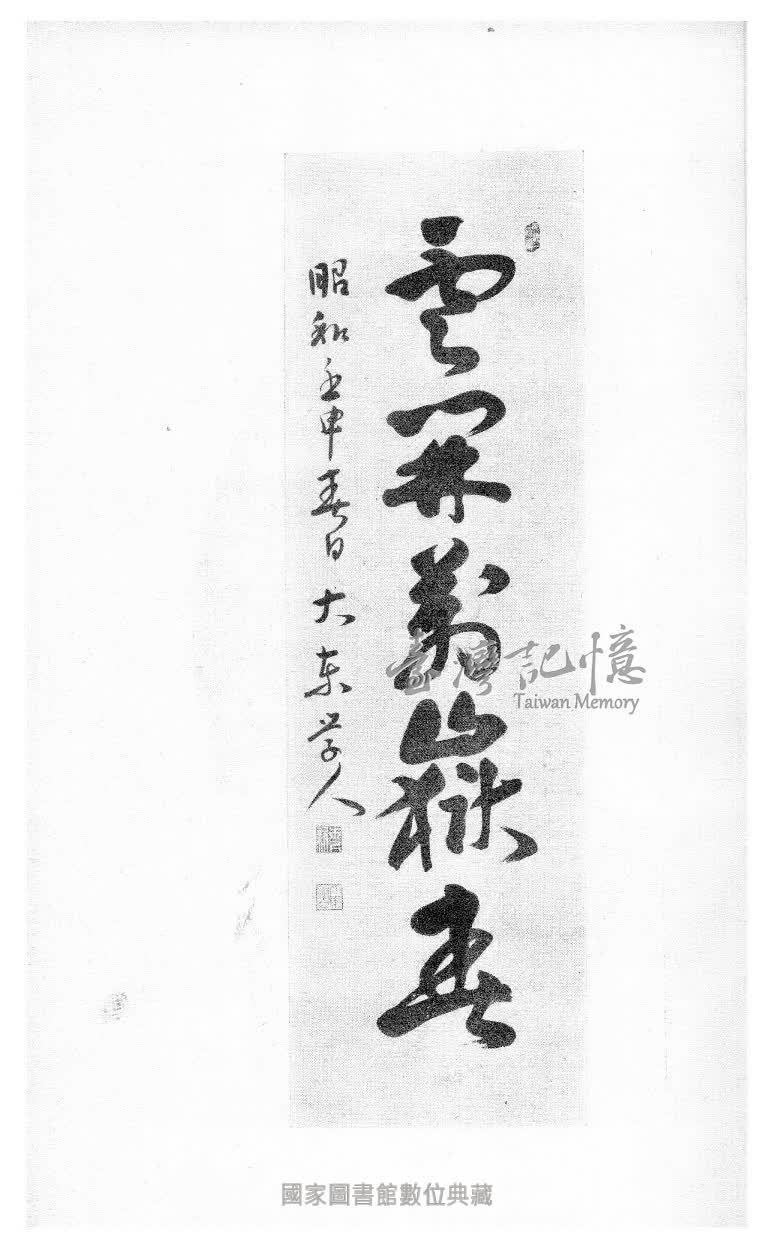 雲開萬嶽春
昭和壬申春日大東学人
臺灣記憶
Taiwan Memory
國家圖書館數位典藏